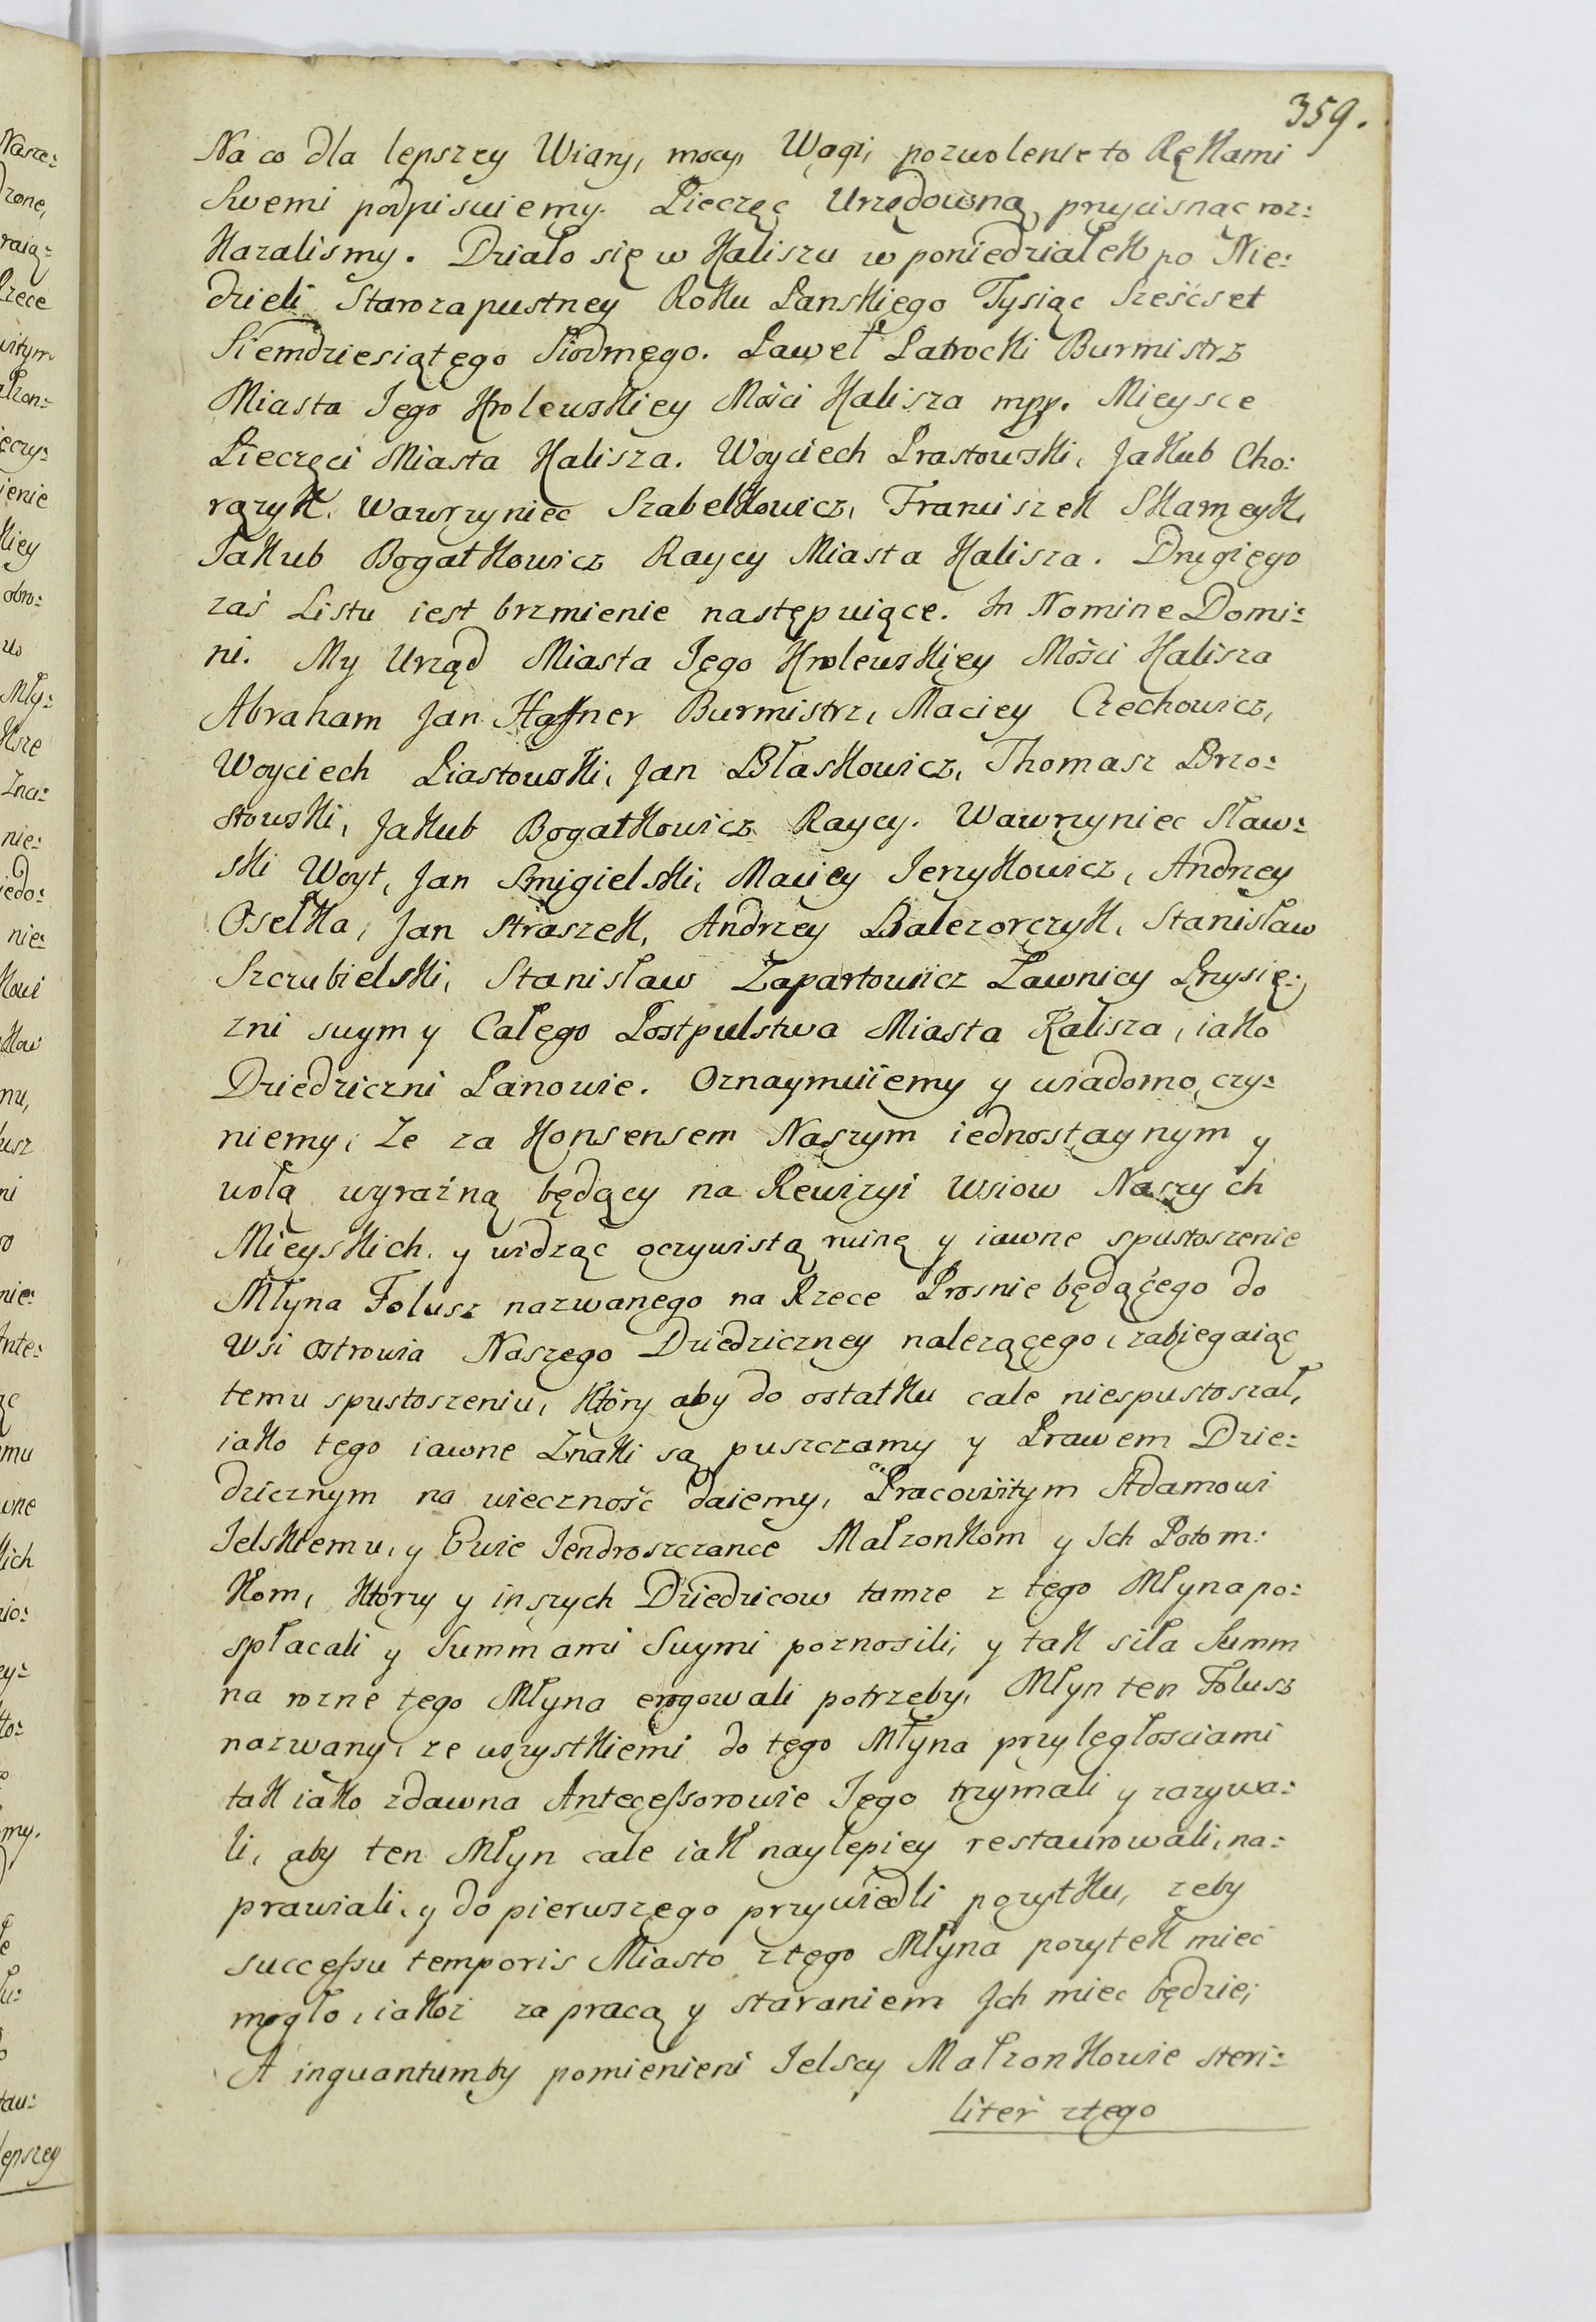 359.
Na co dla lepszey Wiary, mocy, Wagi, pozwolenie to Rękami
Swemi podpisuiemy. Pieczęc Urzędowną przycisnąc roz:
kazalismy. Działo się w Kaliszu w poniedziałek po Nie:
dzieli Starozapustney Roku Panskiego Tysiąc Sześcset
Siemdziesiątego Siodmego. Paweł Patrocki Burmistrz
Miasta Jego Krolewskiey Mości Kalisza mpp. Mieysce
Pieczęci Miasta Kalisza. Woyciech Prastowski, Jakub Cho:
rązyk. Wawrzyniec Szabelkowicz, Franciszek Skamęyk,
Jakub Bogatkowicz Raycy Miasta Kalisza. Drugięgo
zaś Listu iest brzmienie następuiące. In Nomine Domi:
ni. My Urząd Miasta Jęgo Krolewskięy Mości Kalisza
Abraham Jan Haffner Burmistrz, Maciey Czechowicz,
Woyciech Piastowski, Jan Błaskowicz, Thomasz Brzo:
stowski, Jakub Bogatkowicz Raycy. Wawrzyniec Sław:
ski Woyt, Jan Smigielski, Maciey Jerzykowicz, Andrzey
Osełka, Jan Straszek, Andrzey Balezorczyk, Stanisław
Szczubielski, Stanisław Zapartowicz Ławnicy Przysię:
zni swym y Całego Postpulstwa Miasta Kalisza, iako
Dziedziczni Panowie. Oznaymuiemy y wiadomo czy:
niemy, Ze za Konsensem Naszym iednostaynym y
wolą wyraźną będący na Rewizyi Wsiow Naszych
Mieyskich. y widząc oczywistą ruinę y iawne spustoszenie
Młyna Folusz nazwanego na Rzece Prosnie będącego do
Wsi Ostrowia Naszego Dziedziczney nalezącego, zabiegaiąc
temu spustoszeniu, który aby do ostatku cale niespustoszał,
iako tego iawne Znaki są puszczamy y Prawem Dzie:
dzicznym na wieczność daiemy, Pracowitym Adamowi
Jelskiemu, y Ewie Jendroszczance Małzonkom y Ich Potom:
kom, którzy y inszych Dziedzicow tamze z tęgo Młyna po:
spłacali y Summami Swymi poznosili, y tak siła Summ
na rozne tego Młyna erogowali potrzeby, Młyn ten Folusz
nazwany, ze wszystkiemi do tęgo Młyna przyległosciami
tak iako zdawna Antecessorowie Jęgo trzymali y zazywa:
li, aby ten Młyn cale iak naylepiey restaurowali, na:
prawiali, y do pierwszego przywiedli pozytku, zeby
successu temporis Miasto z tęgo Młyna pozytek mieć
mogło, iakoz za pracą y staraniem Ich miec będzie;
A inquantumby pomienieni Jelscy Małzonkowie steri:
liter ztęgo